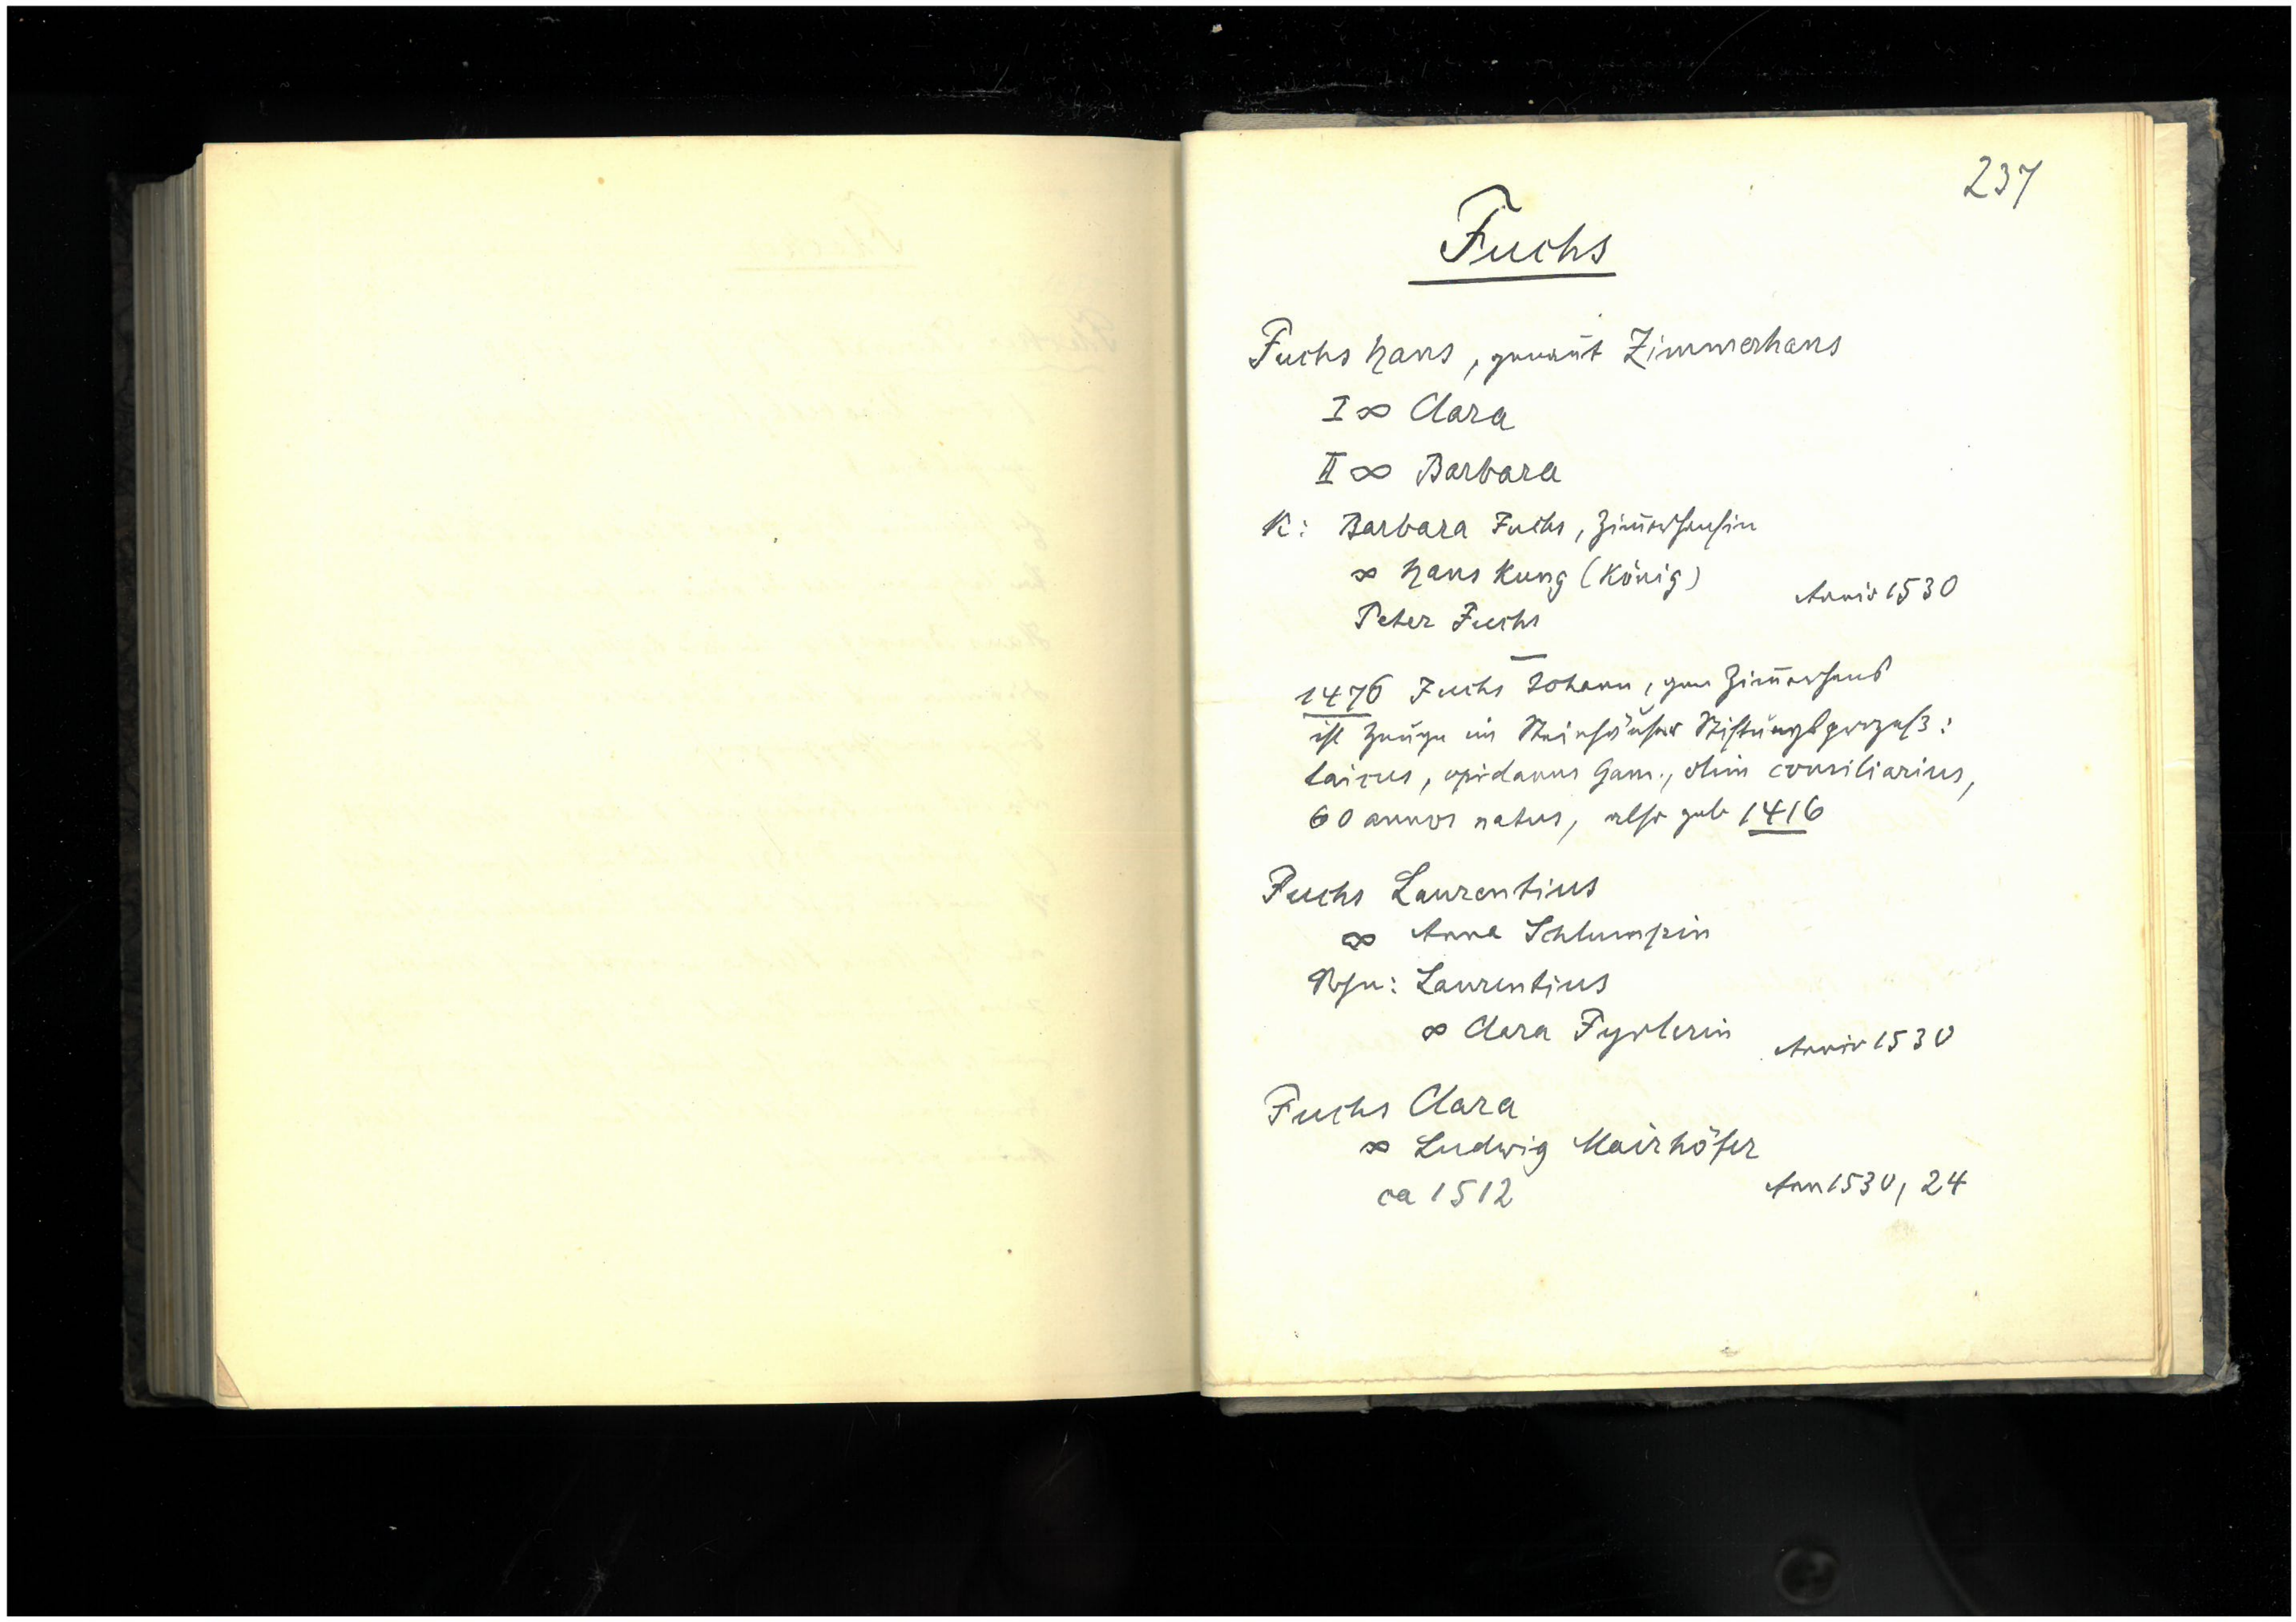 237
Fuchs
Fuchs Hans, genannt Zimmerhans
I ∞ Clara
II ∞ Barbara
K: Barbara Fuchs, Zim̄erhansin
∞ Hans Kung (König)
Anniv 1530
Peter Fuchs
1476 Fuchs Johann, gen Zim̄erhans
ist Zeuge im Steinhäuser Stiftungsprozess:
laicus, opidanus Gam., olim consiliarius,
60 annos natus, also geb 1416
Fuchs Laurentius
∞ Anna Schlumpin
Sohn: Laurentius
∞ Clara Fyrlerin
Anniv 1530
Fuchs Clara
∞ Ludwig Mairhöfer
ca 1512
Ann 1530, 24